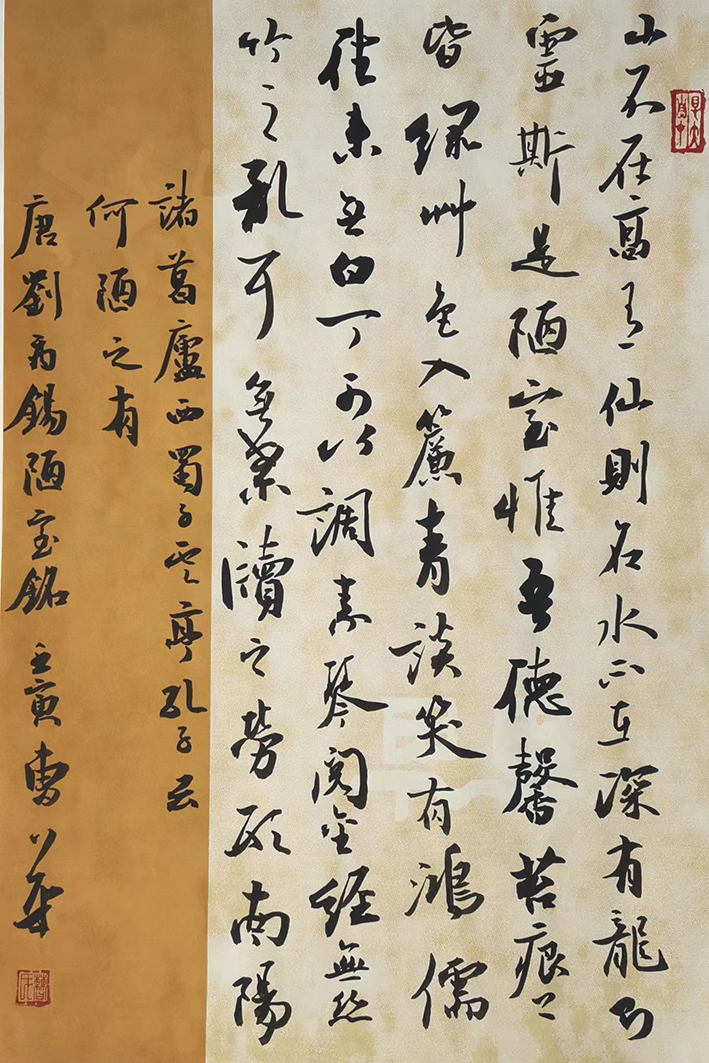 山不在高有仙則名水不在深有龍則
靈斯是陋室惟吾德馨苔痕上
皆綠艸色入簾青談笑有鴻儒
往来無白丁可以調素琴閱金經無絲
竹之亂耳無案牘之勞形南陽
諸葛廬西蜀子雲亭孔子云
何陋之有
唐劉禹錫陋室銘 壬寅曹華